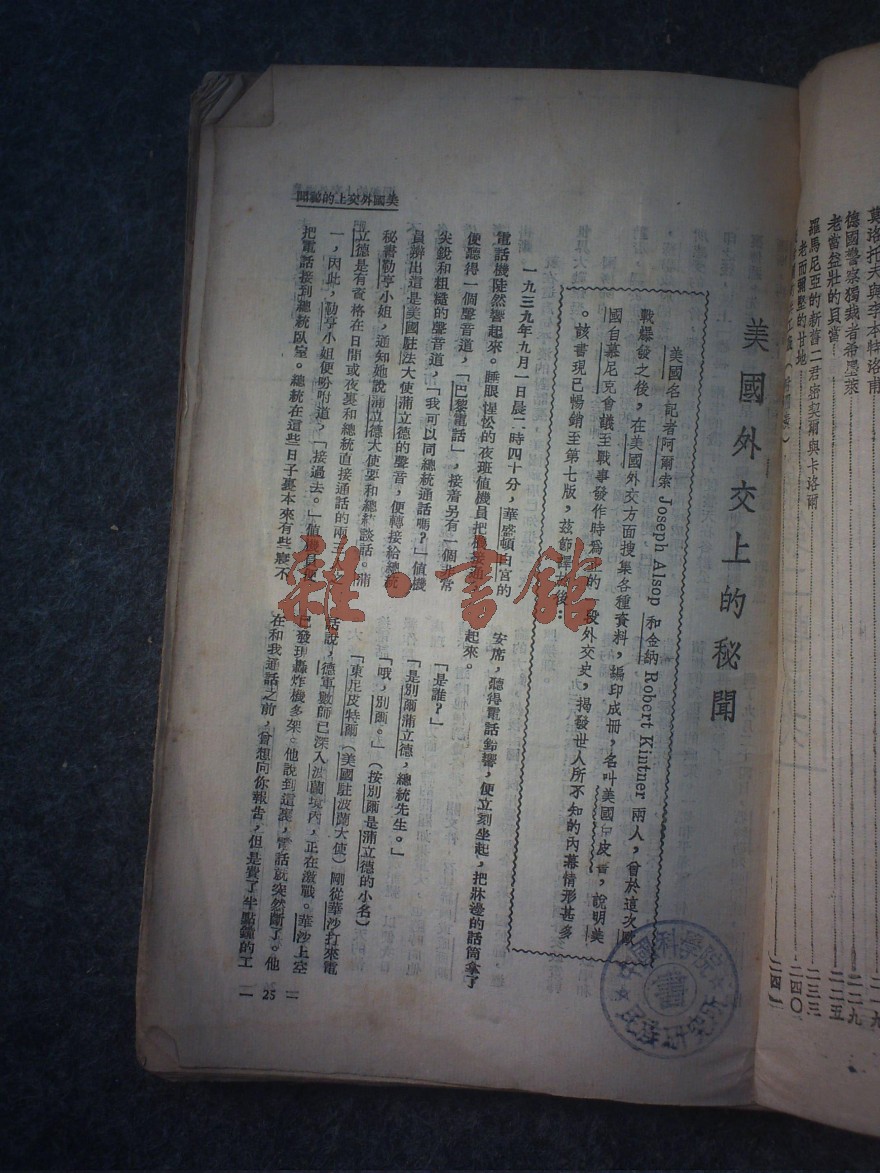 莫洛托夫與李本特洛甫
二一九
德國警察獨裁者希墨萊
二二九
老當益壯的貝當
二二五
羅馬尼亞的新舊二君密契爾與卡洛爾
二三三
老而彌堅的甘地
二四〇
美國外交上的秘聞
美國名記者阿爾索 Joseph Alsop 和金納 Robert Kintner 兩人，曾於這次歐
戰爆發之後，在美國外交方面搜集各種資料，編印成冊，名叫美國白皮書，說明美
國自慕尼克會議至戰事發作時為止的一段外交史，揭發世人所不知的內幕情形甚多
。該書現已暢銷至第七版，茲節譯於後：
一九三九年九月一日晨二時四十分，華盛頓白宮的
電話機陡然響起來。睡眼惺忪的夜班值機員把機接通，
便聽得一個聲音道，「巴黎電話」，接着另有一個非常
尖銳和粗糙的聲音道，「我可以同總統通話嗎？」值機
員辨出這是美國駐法大使蒲立德的聲音，便轉接給總統
秘書勒亭小姐，通知她說蒲立德大使要和總統談話。蒲
立德是有資格在日間或夜裏和總統直接通話的兩三人之
一，因此，勒亭小姐便吩咐道，「接過去。」值機員便
把電話接到總統臥室。總統在這些日子裏本來有些寢不
安席，聽得電話鈴響，便立刻坐起，把牀邊的話筒拿了
起來。
「是誰？」
「是別爾蒲立德，總統先生。」
「哦，別爾。」（按別爾是蒲立德的小名）
「東尼皮特爾（美國駐波蘭大使）剛從華沙打來電
話說，德軍數師已深入波蘭境內，正在激戰。華沙上空
已發現轟炸機多架。他說到這裏，電話就突然斷了。他
在和我通話之前，曾想向你報告，但是費了半點鐘的工
美國外交上的秘聞
25
雜·書館
書